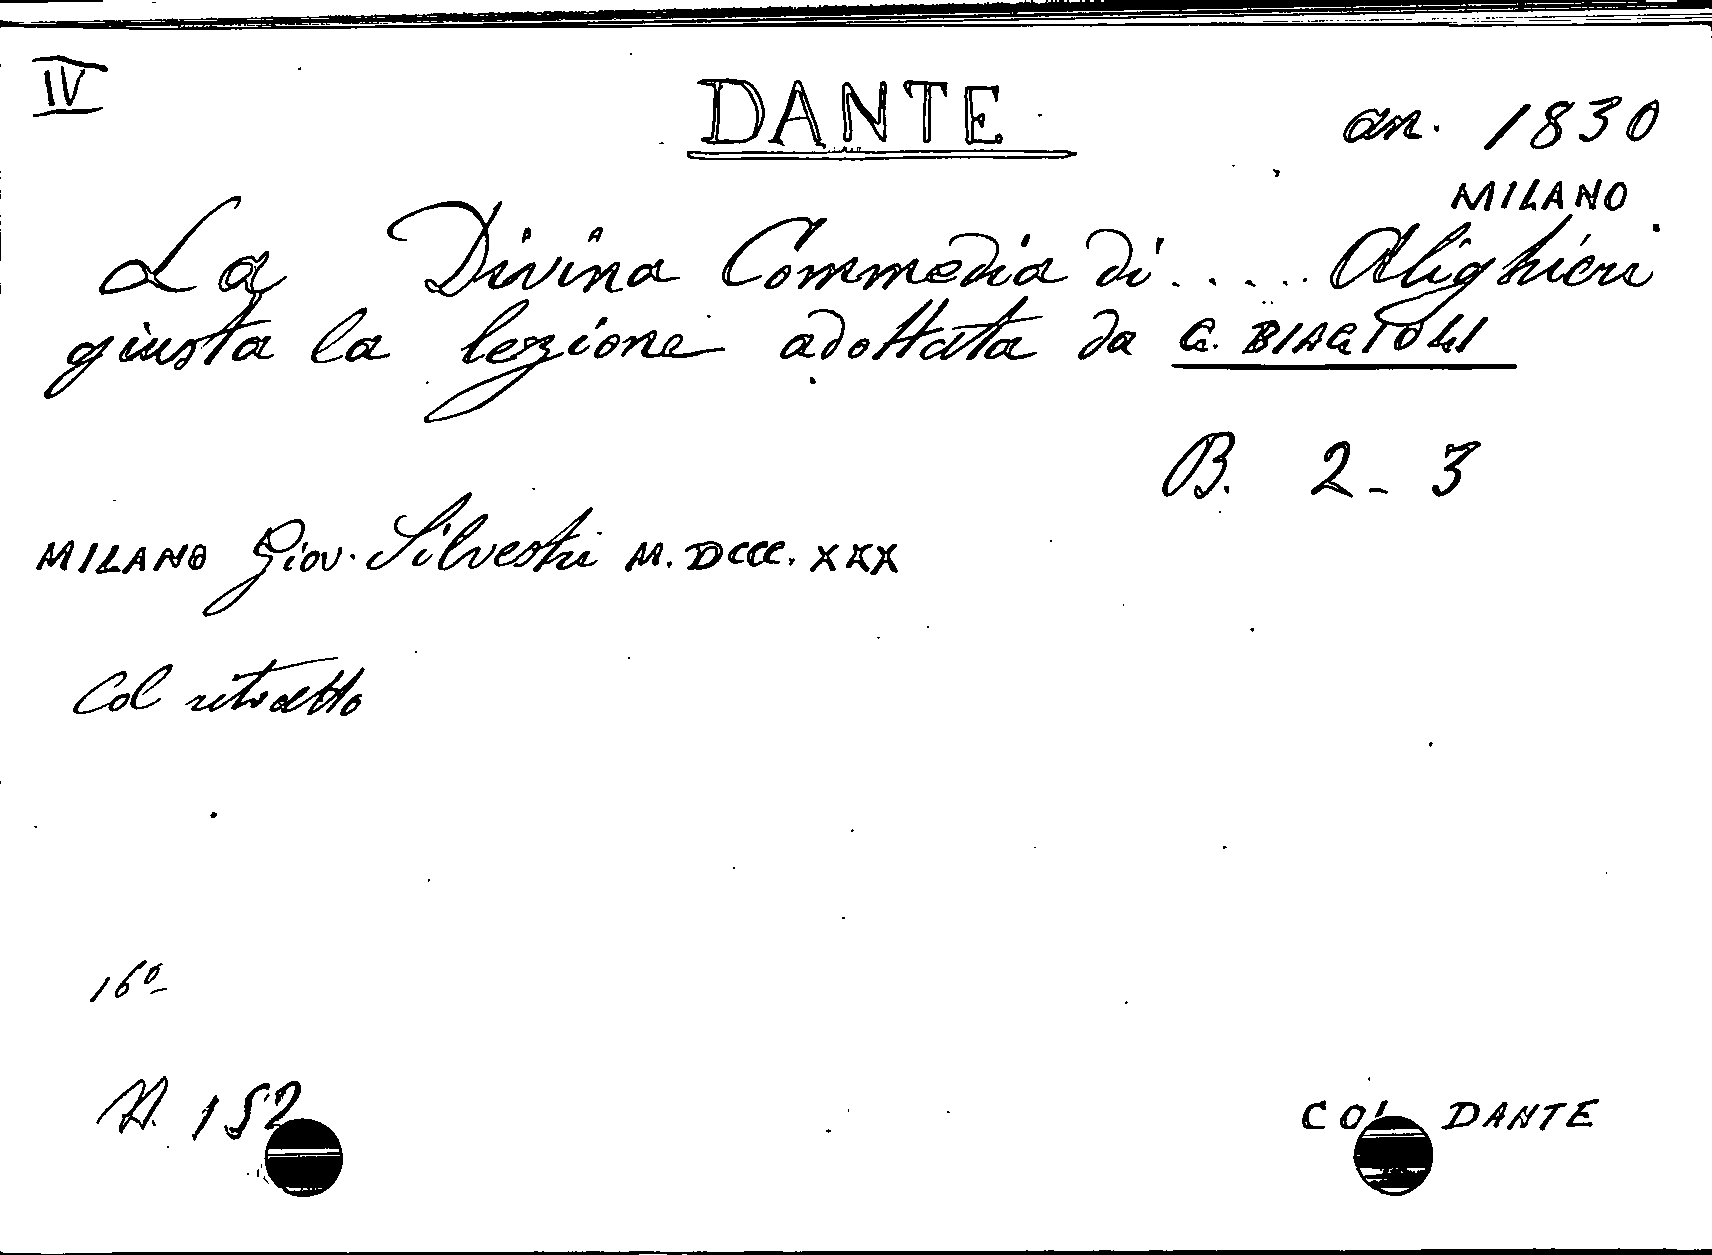 IV
DANTE
an. 1830
MILANO
La Divina Commedia di ..... Alighieri
giusta la lezione adottata da G. BIAGIOLI
B. 2-3
MILANO Giov. Silvestri M.DCCC.XXX
Col ritratto
16º
152
COL DANTE